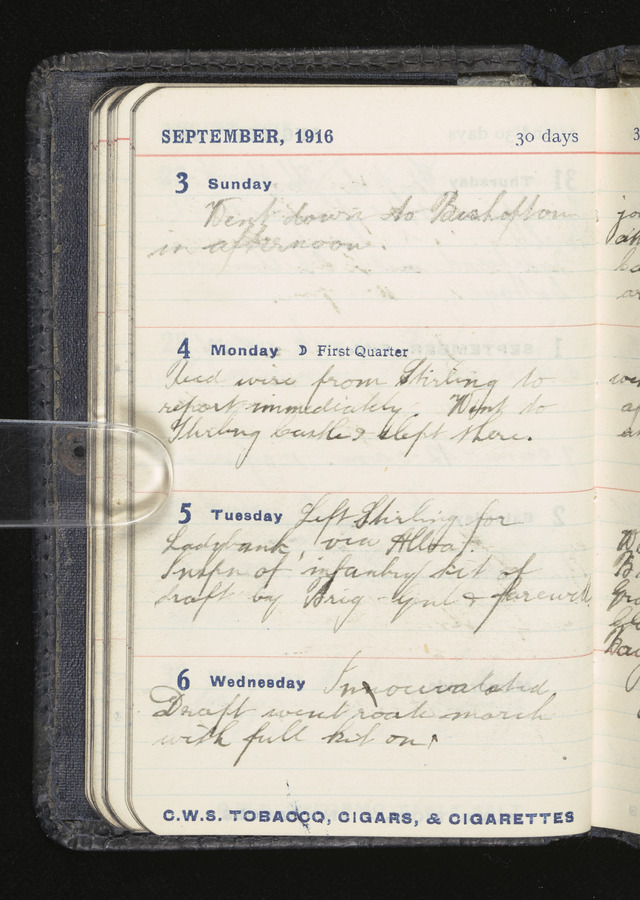 SEPTEMBER, 1916 30 days
3 Sunday
Went down to Bishopton
in afternoon.
4 Monday ☽ First Quarter
wire from Stirling to
report immediately. Went to
Stirling castle & slept there.
5 Tuesday Left Stirling for
Ladybank, via Alloa.
Inspn of infantry kit of
draft by Brig-Gnl & farewell
6 Wednesday
Draft went route march
with full kit on.
C.W.S. TOBACCO, CIGARS, & CIGARETTES